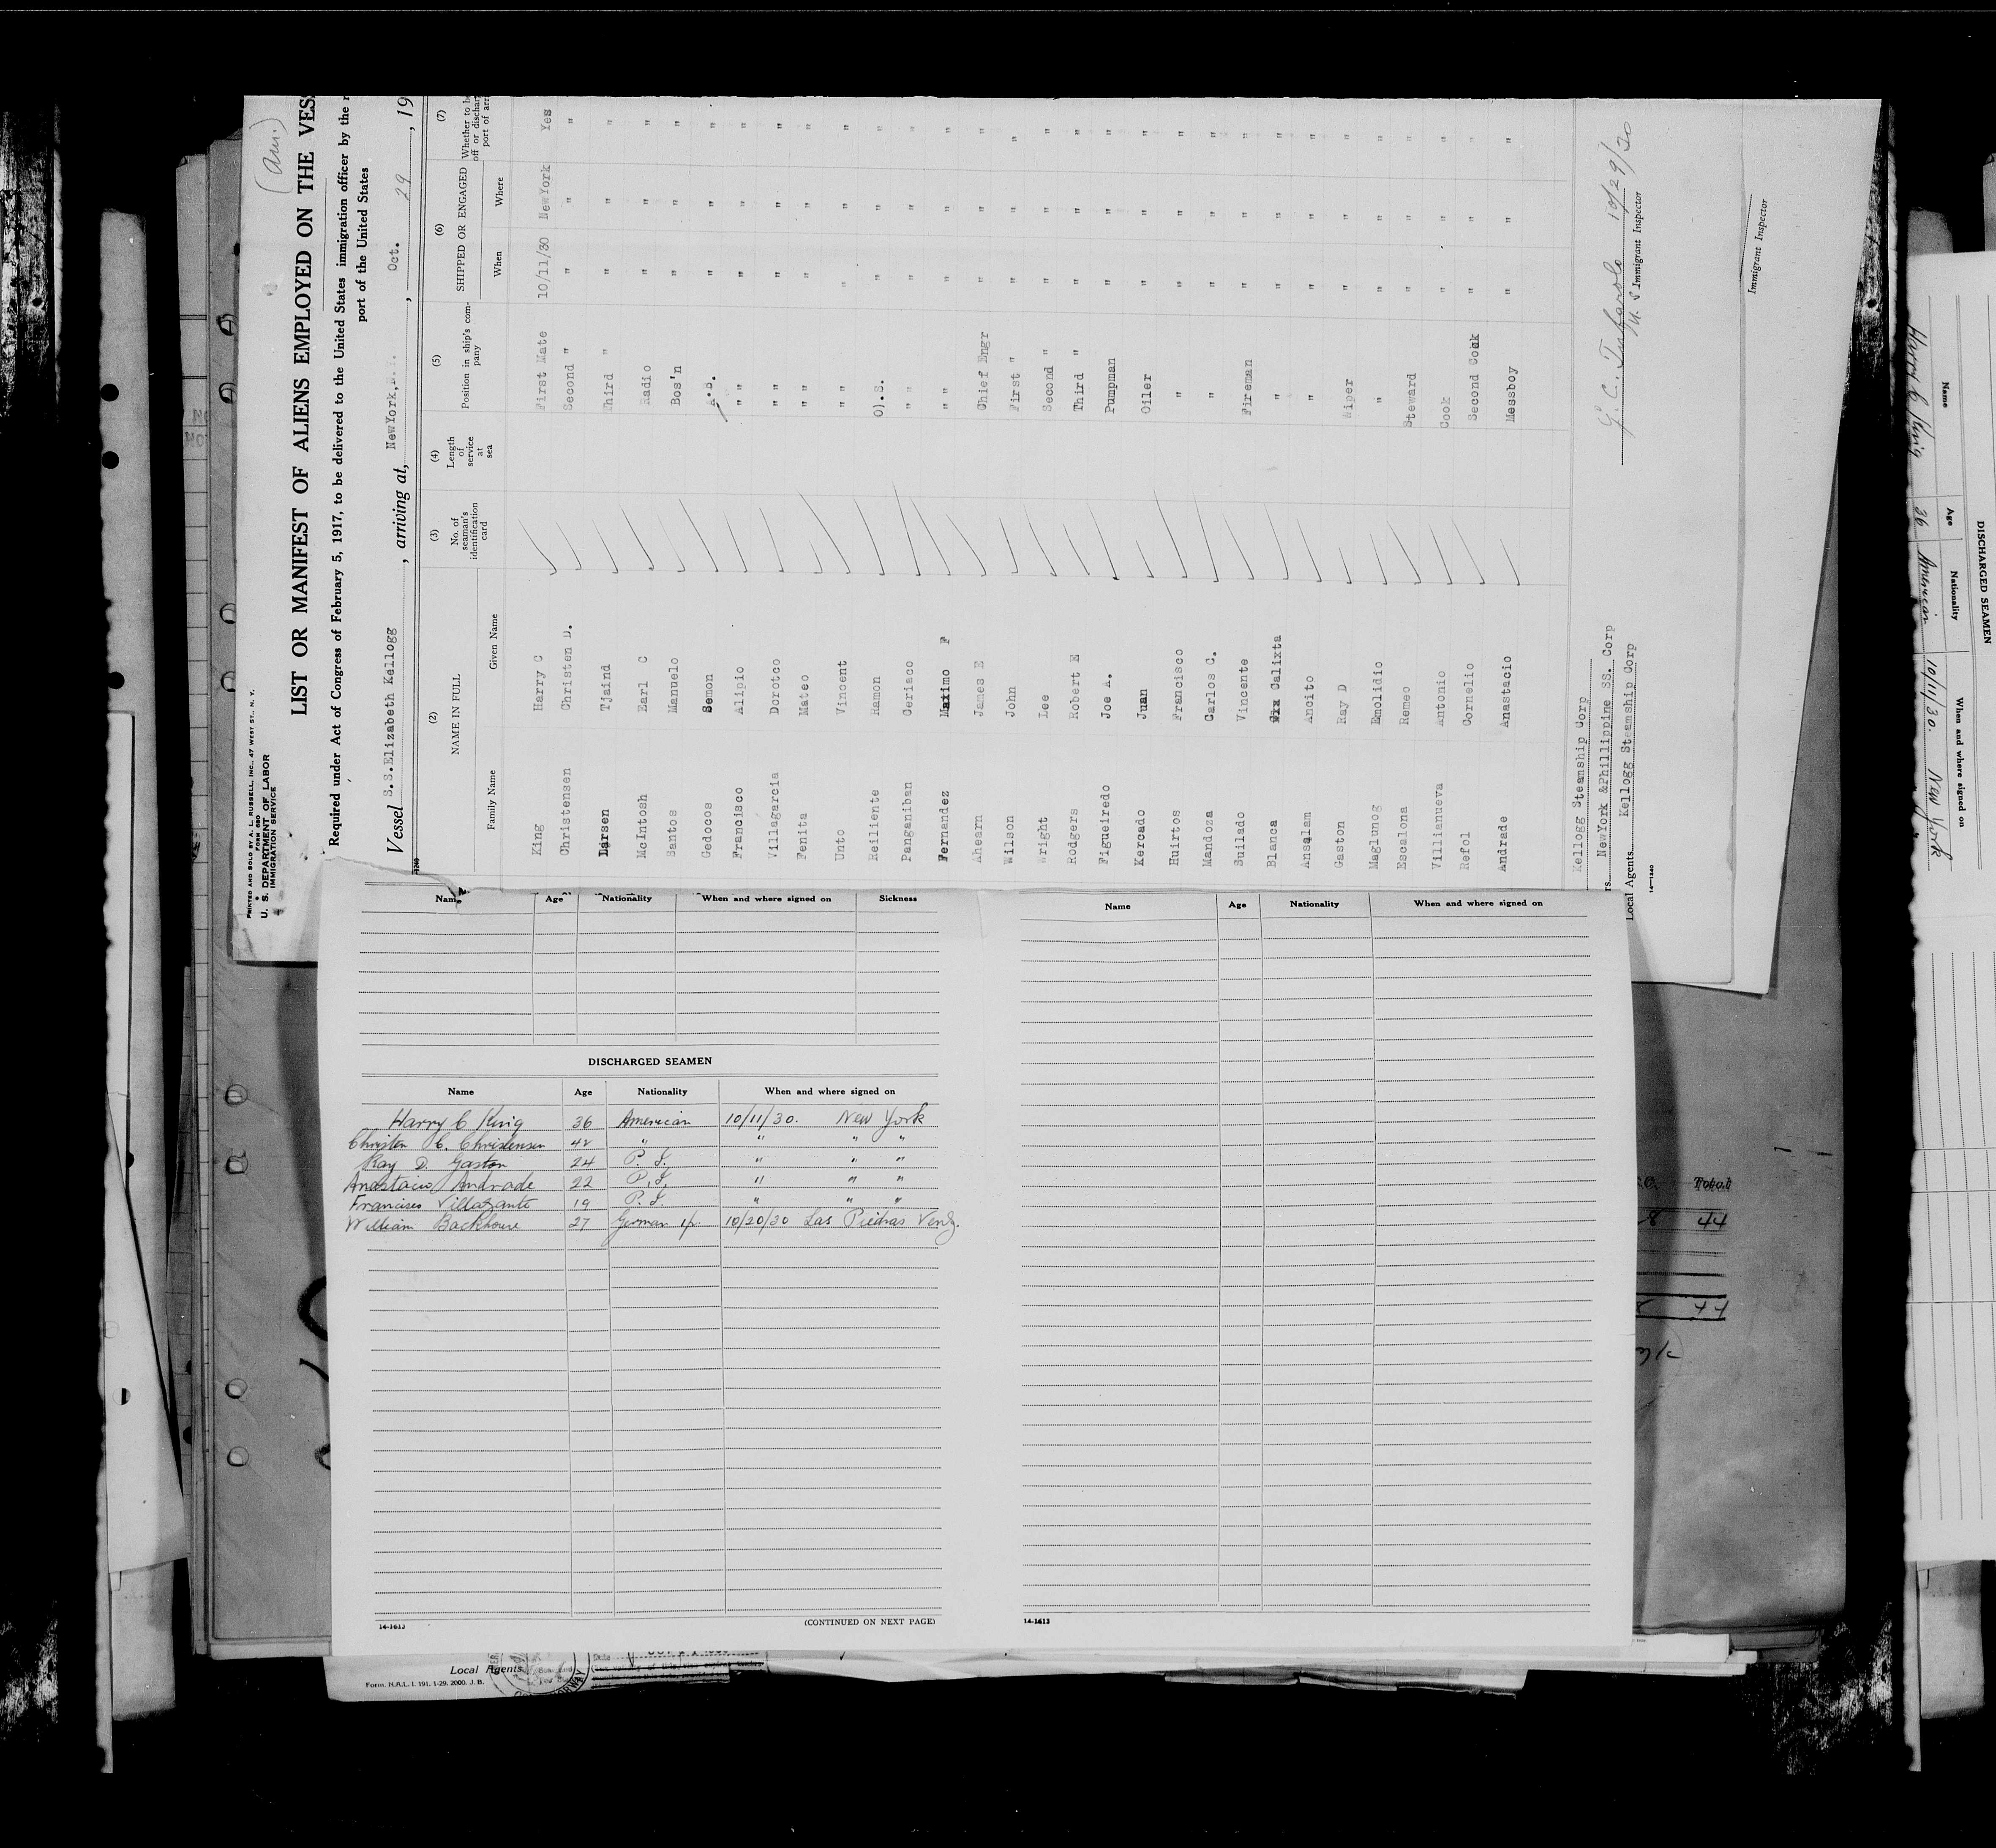 (Am.)
PRINTED AND SOLD BY A. L. RUSSELL, INC., 47 WEST ST., N. Y.
FORM 680
U. S. DEPARTMENT OF LABOR
IMMIGRATION SERVICE
LIST OR MANIFEST OF ALIENS EMPLOYED ON THE VESS
Required under Act of Congress of February 5, 1917, to be delivered to the United States immigration officer by the r
port of the United States
Vessel S.S.Elizabeth Kellogg, arriving at, NewYork, Oct. 29, 19
(2) (3) (4) (5) (6) (7)
NAME IN FULL No. of seaman's identification card Length of service at sea Position in ship's company SHIPPED OR ENGAGED Whether to be off or dischar port of arr
Family Name Given Name When Where
King Harry C First Mate 10/11/30 NewYork Yes
Christensen Christen D. Second " " " "
Larsen Tjaind Third " " " "
McIntosh Earl C Radio " " "
Santos Manuelo Bos'n " " "
Gedocos Semon A.B. " " "
Francisco Alipio " " " " "
Villagarcia Doroteo " " " " "
Fenita Mateo " " " " "
Unto Vincent " " " " "
Reiliente Ramon O.S. " " "
Panganiban Ceriaco " " " " "
Fernandez Maximo F " " " " "
Ahearn James E Chief Engr " " "
Wilson John First " " " "
Wright Lee Second " " " "
Rodgers Robert E Third " " " "
Figueiredo Joe A. Pumpman " " "
Kercado Juan Oiler " " "
Huirtos Francisco " " " "
Mandoza Carlos C. " " " "
Suilado Vincente Fireman " " "
Blanca Calixta " " " "
Ansalam Ancito " " " "
Gaston Ray D Wiper " " "
Maglunos Emolidio " " " "
Escalona Remeo Steward " " "
Villianueva Antonio Cook " " "
Refol Cornelio Second Cook " " "
Andrade Anastacio Messboy " " "
Kellogg Steamship Corp
rs NewYork &Phillippine SS. Corp
Local Agents Kellogg Steamship Corp
14-1240
10/29/30
U. S Immigrant Inspector
Immigrant Inspector
Name Age Nationality When and where signed on Sickness
DISCHARGED SEAMEN
Name Age Nationality When and where signed on
Harry C King 36 American 10/11/30. New York
Christen C. Christensen 42 " " " "
Ray D. Gaston 24 P. I. " " "
Anastacio Andrade 22 P. I. " " "
Francisco Villazante 19 P. I. " " "
William Backhouse 27 German 10/20/30 Las Piedras Venz.
14-1612
(CONTINUED ON NEXT PAGE)
Name Age Nationality When and where signed on
14-1613
Total
44
44
Local Agents
Form. N.A.L. I. 191. 1-29. 2000. J. B.
DISCHARGED SEAMEN
Name Age Nationality When and where signed on
Harry C King 36 American 10/11/30. New York